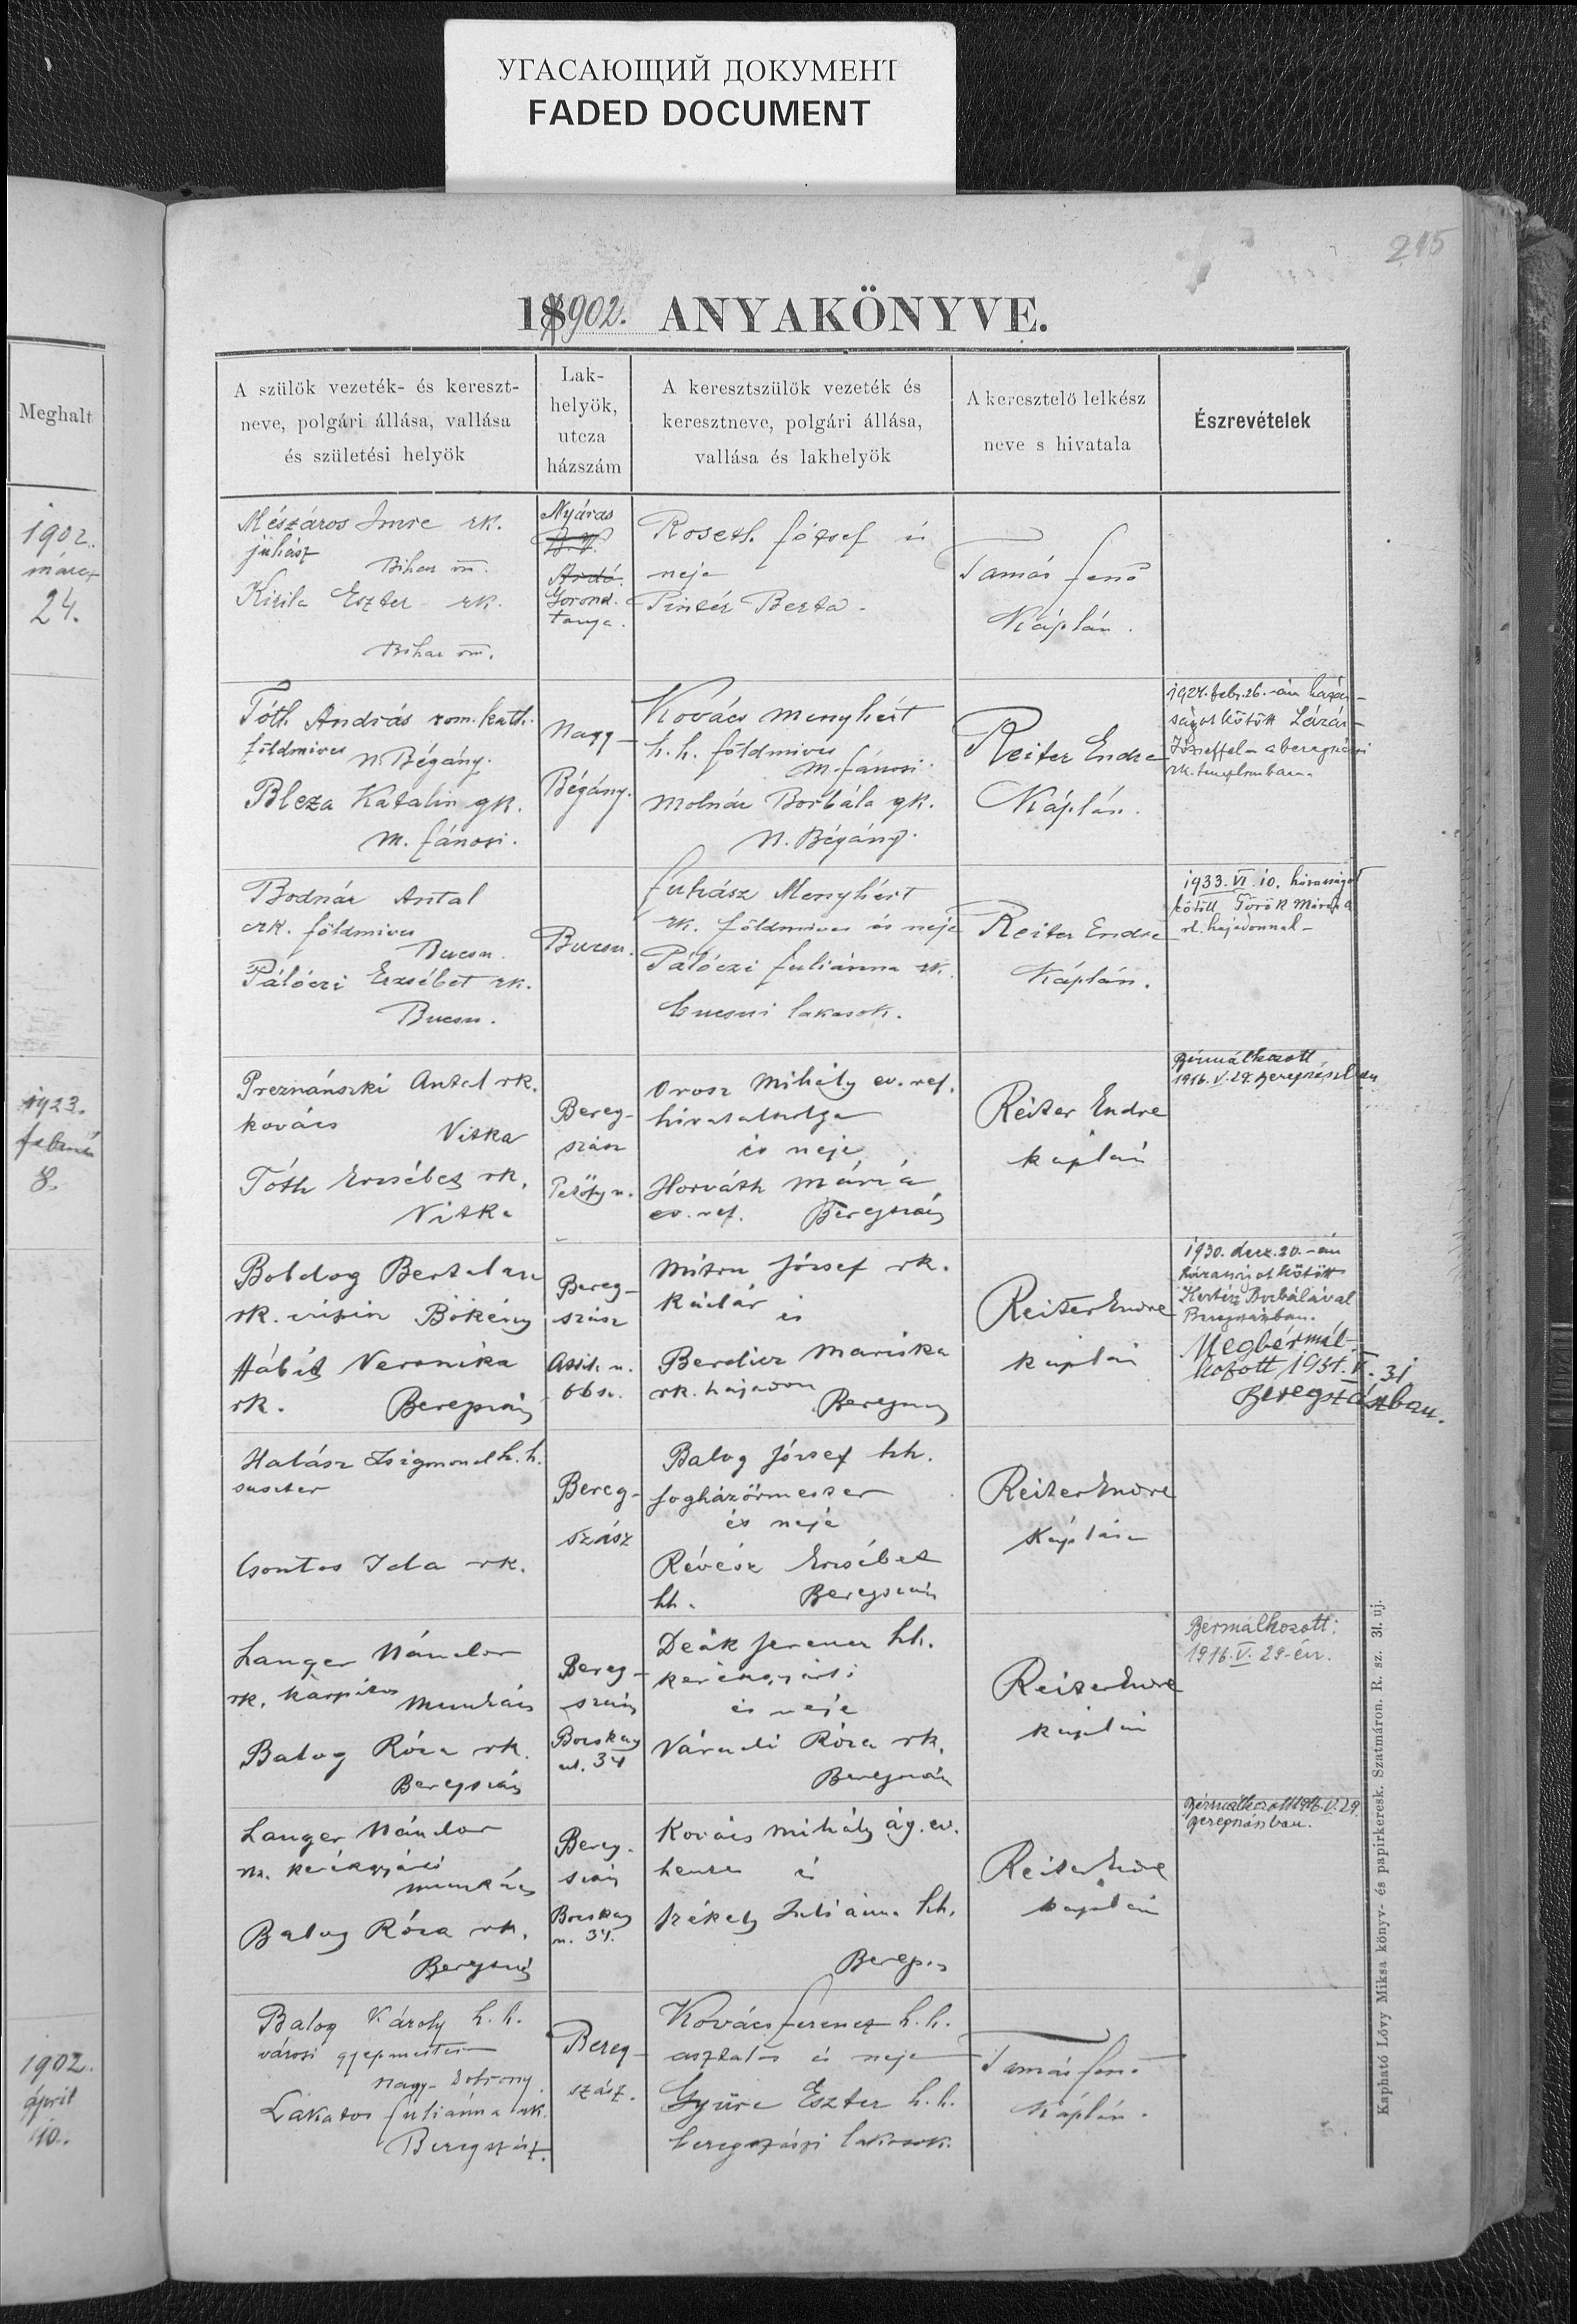 УГАСАЮЩИЙ ДОКУМЕНТ
FADED DOCUMENT
215
1902. ANYAKÖNYVE.
Meghalt
A szülők vezeték- és kereszt-
neve, polgári állása, vallása
és születési helyök
Lak-
helyök,
utcza
házszám
A keresztszülők vezeték és
keresztneve, polgári állása,
vallása és lakhelyök
A keresztelő lelkész
neve s hivatala
Észrevételek
1902.
márcz
24.
Mészáros Imre rk.
juhász
Bihar m.
Kirila Eszter rk.
Bihar m.
Nyáras
Ardó.
Gorond.
tanya.
Roseth József és
neje
Pintér Berta.
Tamás Jenő
Káplán.
Tóth András rom. kath.
földmives
N. Bégány.
Bleza Katalin gk.
M. Jánosi.
Nagy-
Bégány.
Kovács Menyhért
h. h. földmives
M. Jánosi.
Molnár Borbála gk.
N. Bégány.
Reiter Endre
Káplán.
1927. febr. 26.-án házas-
ságot kötött Lázár
Józseffel - a beregszászi
rk. templomban.
Bodnár Antal
rk. földmives
Bucsu.
Pálóczi Erzsébet rk.
Bucsu.
Bucsu.
Juhász Menyhért
rk. földmives és neje
Pálóczi Juliánna rk.
bucsui lakosok.
Reiter Endre
Káplán.
1933. VI. 10. házasságot
kötött Török Mária
rk. hajadonnal-
1923.
február
8.
Preznánszki Antal rk.
kovács
Vitka
Tóth Erzsébet rk.
Vitka
Bereg-
szász
Petőfy u.
Orosz Mihály ev. ref.
hivatalszolga
és neje
Horváth Mária
ev. ref. Beregszász
Reiter Endre
káplán
Bérmálkozott
1916. V. 29. Beregszászban
Boldog Bertalan
rk. Bökény
Hábit Veronika
rk. Beregszász
Bereg-
szász
u.
66 sz.
Mitru József rk.
kádár és
Berdicz Mariska
rk. hajadon
Beregszász
Reiter Endre
káplán
1930. decz. 20.-án
házasságot kötött
Kertész Borbálával
Beregszászban.
Megbérmál-
kozott 1931. V. 31
Beregszászban.
Halász Zsigmond h. h.
suszter
Csontos Ida rk.
Bereg-
szász
Balog József hh.
fogházőrmester
és neje
Révész Erzsébet
hh. Beregszász
Reiter Endre
Káplán
Langer Nándor
rk. kárpitos
Munkács
Balog Róza rk.
Beregszász
Bereg-
szász
Bocskay
ut. 34
Deák Ferencz hh.
kerékgyártó
és neje
Váradi Róza rk.
Beregszász
Reiter Endre
káplán
Bérmálkozott:
1916. V. 29-én.
Langer Nándor
rk. kerékgyártó
Munkács
Balog Róza rk.
Beregszász
Bereg-
szász
Bocskay
u. 34.
Kovács Mihály ág. ev.
hentes és
Székely Juliánna hh.
Beregsz
Reiter Endre
káplán
Bérmálkozott 1916. V. 29.
Beregszászban.
1902.
április
10.
Balog Károly h. h.
városi gépmester
Nagy-Dobrony
Lakatos Juliánna rk.
Beregszász.
Bereg-
szász.
Kovács Ferencz h. h.
asztalos és neje
Gyüre Eszter h. h.
beregszászi lakosok.
Tamás Jenő
Káplán.
Kapható Lővy Miksa könyv- és papirkeresk. Szatmáron. R. sz. 31. uj.